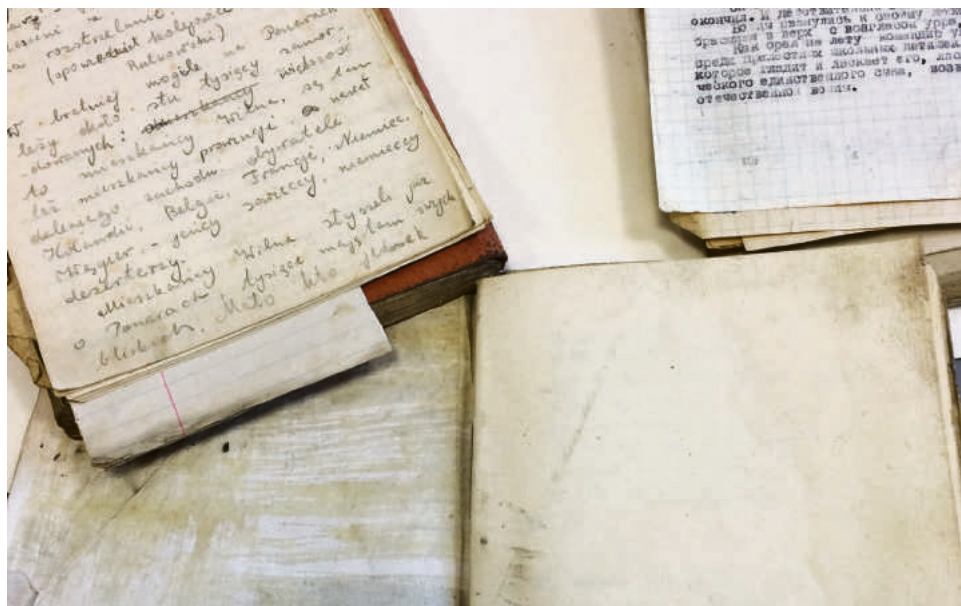 rozstrzelanie
(opowiedział kolejarz
Rutkowski)
W bratniej mogile na Ponarach
leży około stu tysięcy zamor-
dowanych: większość
to mieszkańcy Wilna, są tam
też mieszkańcy prowincji, a nawet
dalekiego zachodu obywatele
Holandii, Belgii, Francji, Niemiec,
Węgier, - jeńcy sowieccy, niemieccy
dezerterzy.
Mieszkańcy Wilna słyszeli już
o Ponarach tysiące mają tam swych
bliskich. Mało kto jednak
окончил. И
рванулись к своему
в верх с возгласом Урра,
Как орел на лету
среди прелестных школьных
которое гладит и ласкает его,
ческого единственного сына,
отечественной войны.